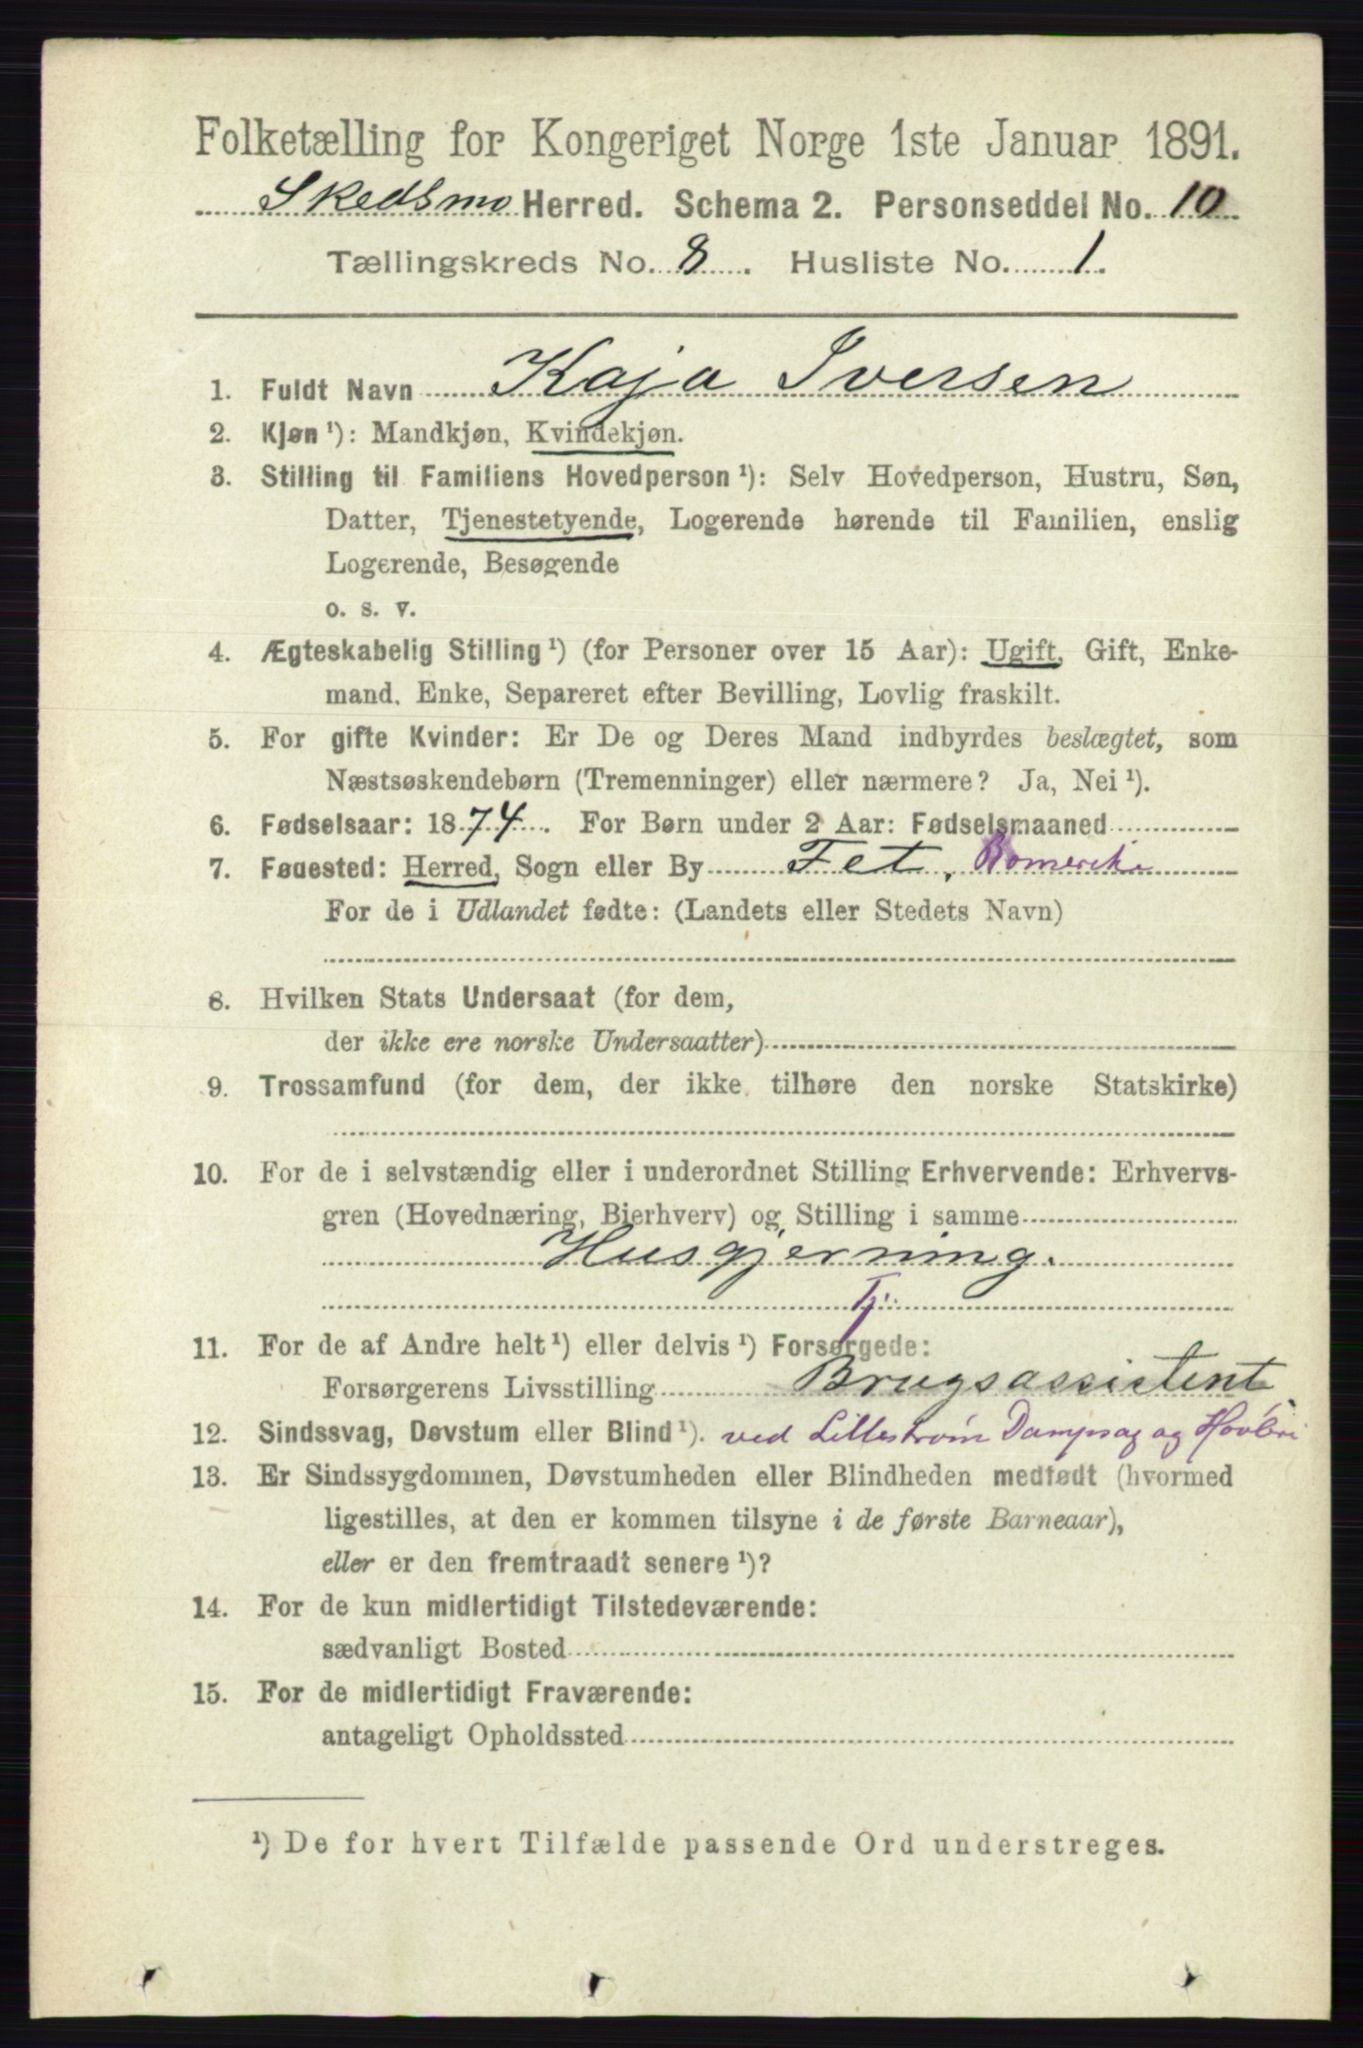 Folketælling for Kongeriget Norge 1ste Januar 1891.
Skedsmo Herred. Schema 2. Personseddel No. 10
Tællingskreds No. 8. Husliste No. 1.
1. Fuldt Navn Kaja Iversen
2. Kjøn ¹): Mandkjøn, Kvindekjøn.
3. Stilling til Familiens Hovedperson ¹): Selv Hovedperson, Hustru, Søn,
Datter, Tjenestetyende, Logerende hørende til Familien, enslig
Logerende, Besøgende
o. s. v.
4. Ægteskabelig Stilling ¹) (for Personer over 15 Aar): Ugift, Gift, Enke-
mand, Enke, Separeret efter Bevilling, Lovlig fraskilt.
5. For gifte Kvinder: Er De og Deres Mand indbyrdes beslægtet, som
Næstsøskendebørn (Tremenninger) eller nærmere? Ja, Nei ¹).
6. Fødselsaar: 1874. For Børn under 2 Aar: Fødselsmaaned
7. Fødested: Herred, Sogn eller By Fet, Romerike
For de i Udlandet fødte: (Landets eller Stedets Navn)
8. Hvilken Stats Undersaat (for dem,
der ikke ere norske Undersaatter)
9. Trossamfund (for dem, der ikke tilhøre den norske Statskirke)
10. For de i selvstændig eller i underordnet Stilling Erhvervende: Erhvervs-
gren (Hovednæring, Bierhverv) og Stilling i samme
Husgjerning.
Tj.
11. For de af Andre helt ¹) eller delvis ¹) Forsørgede:
Forsørgerens Livsstilling Brugsassistent
12. Sindssvag, Døvstum eller Blind ¹). ved Lillestrøm Dampsag og Høvleri
13. Er Sindssygdommen, Døvstumheden eller Blindheden medfødt (hvormed
ligestilles, at den er kommen tilsyne i de første Barneaar),
eller er den fremtraadt senere ¹)?
14. For de kun midlertidigt Tilstedeværende:
sædvanligt Bosted
15. For de midlertidigt Fraværende:
antageligt Opholdssted
¹) De for hvert Tilfælde passende Ord understreges.